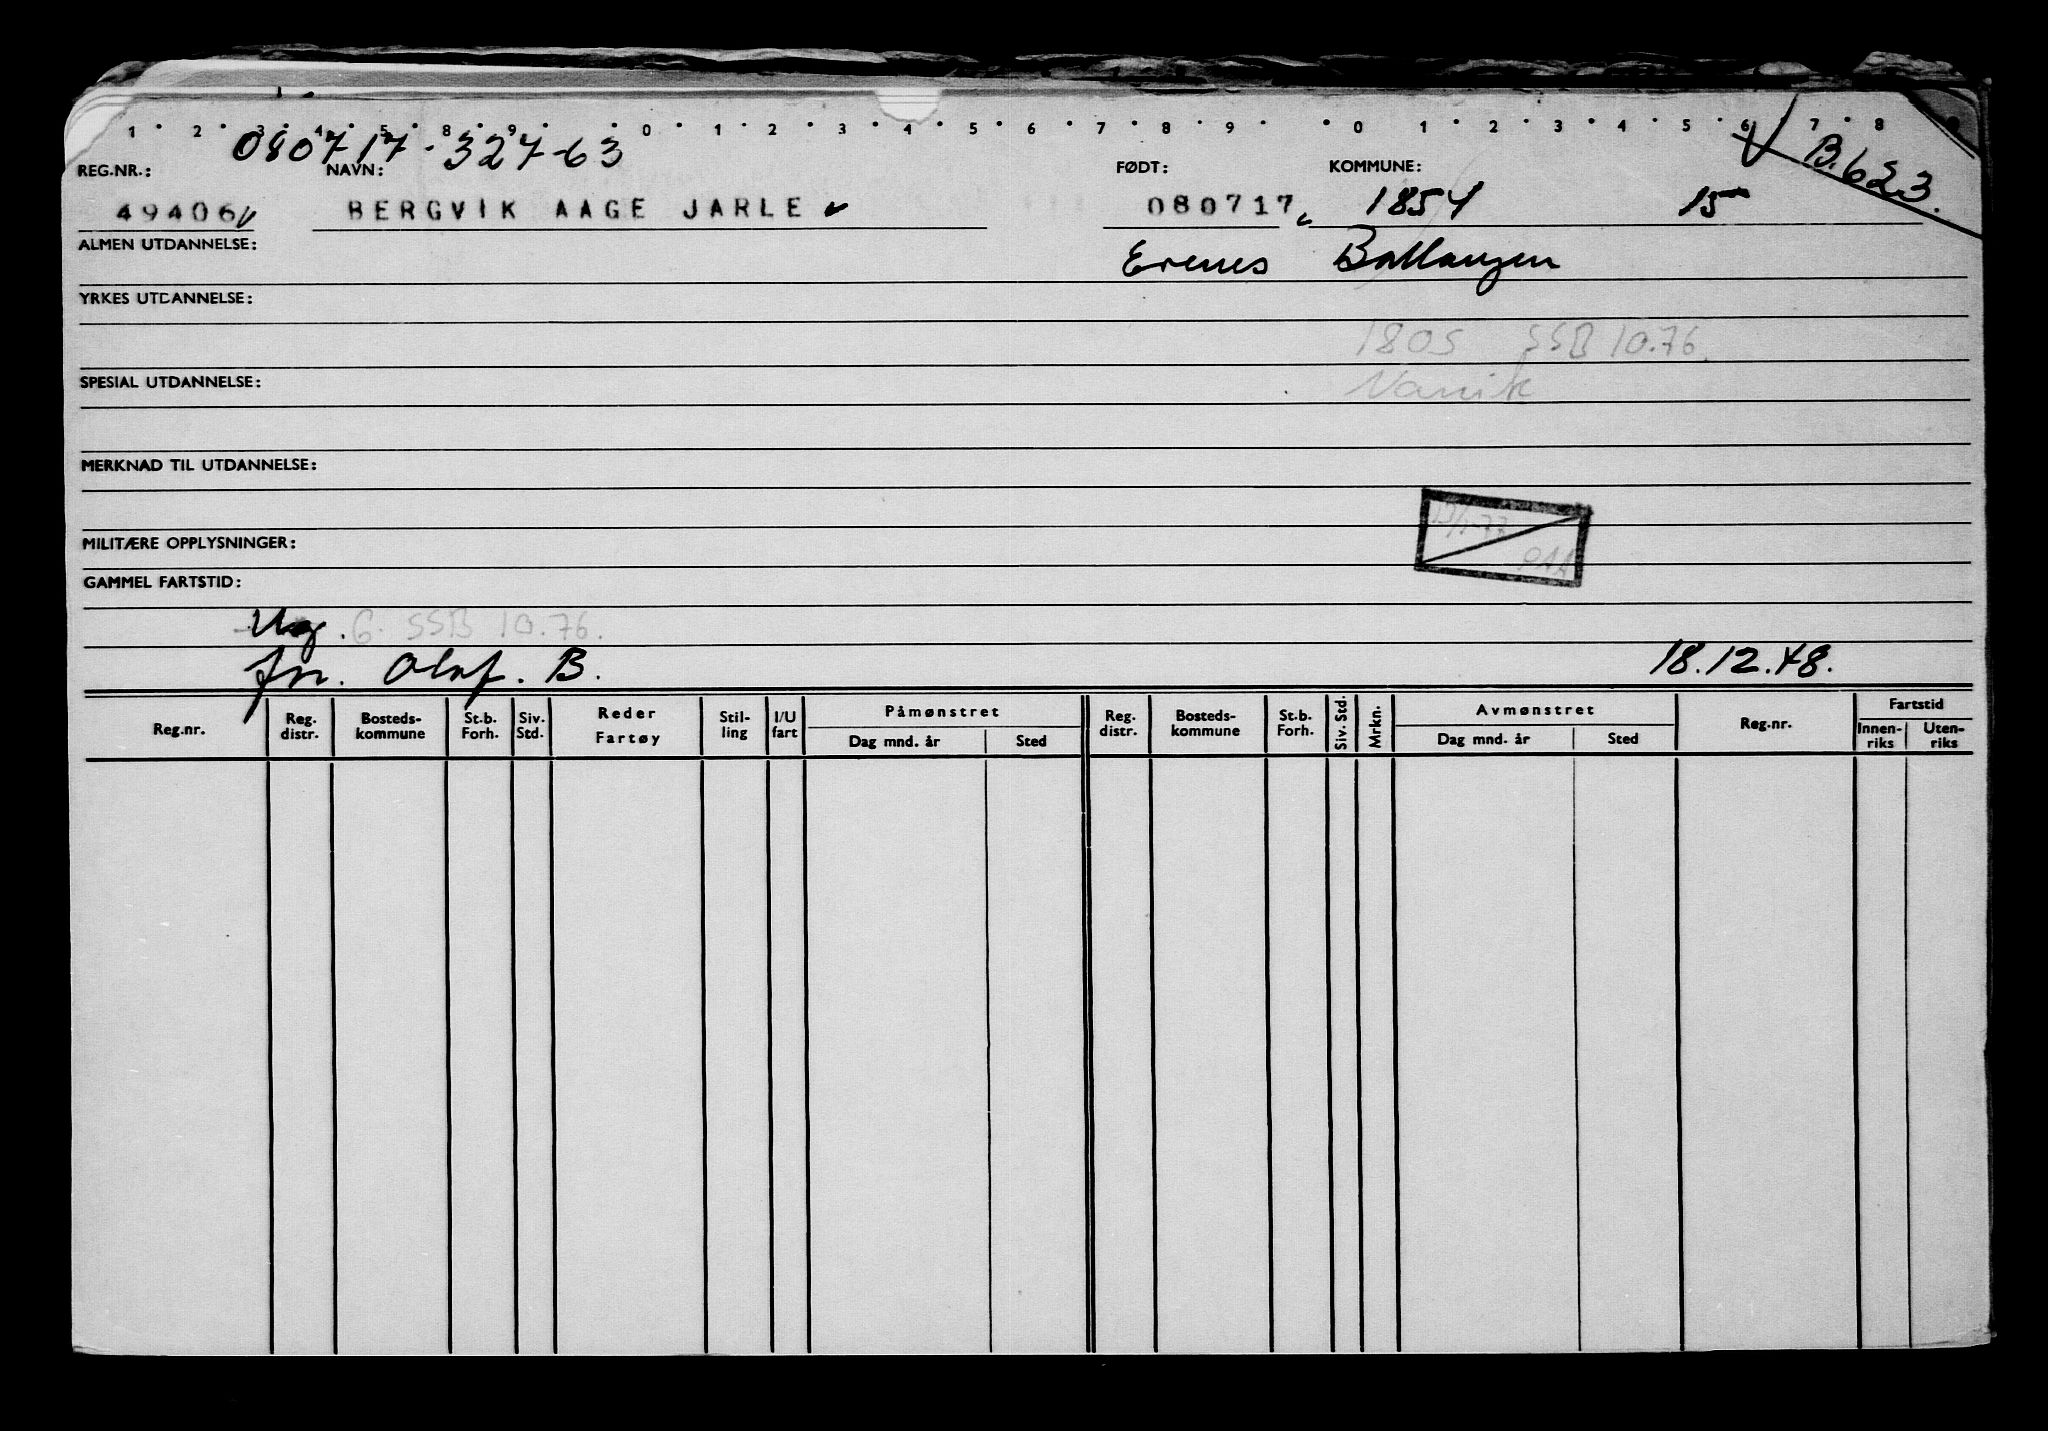 1 2 3 4 5 8 9 0 1 2 3 4 5 6 7 8 9 0 1 2 3 4 5 6 7 8 9
080717-32763
B.623.
REG.NR.: NAVN: FØDT: KOMMUNE:
49406 BERGVIK AAGE JARLE 080717 1854 15
ALMEN UTDANNELSE: Evenes Ballangen
YRKES UTDANNELSE:
1805 SSB 10.76.
SPESIAL UTDANNELSE: Narvik
MERKNAD TIL UTDANNELSE:
MILITÆRE OPPLYSNINGER:
GAMMEL FARTSTID:
Ug. G. SSB 10.76.
fm. Olaf. B. 18.12.48.
Reg.nr. Reg. distr. Bosteds-kommune St.b. Forh. Siv. Std. Reder Fartøy Stil-ling I/U fart Påmønstret Dag mnd. år Sted Reg. distr. Bosteds-kommune St.b. Forh. Siv. Std. Mrkn. Avmønstret Dag mnd. år Sted Reg.nr. Fartstid Innen-riks Uten-riks